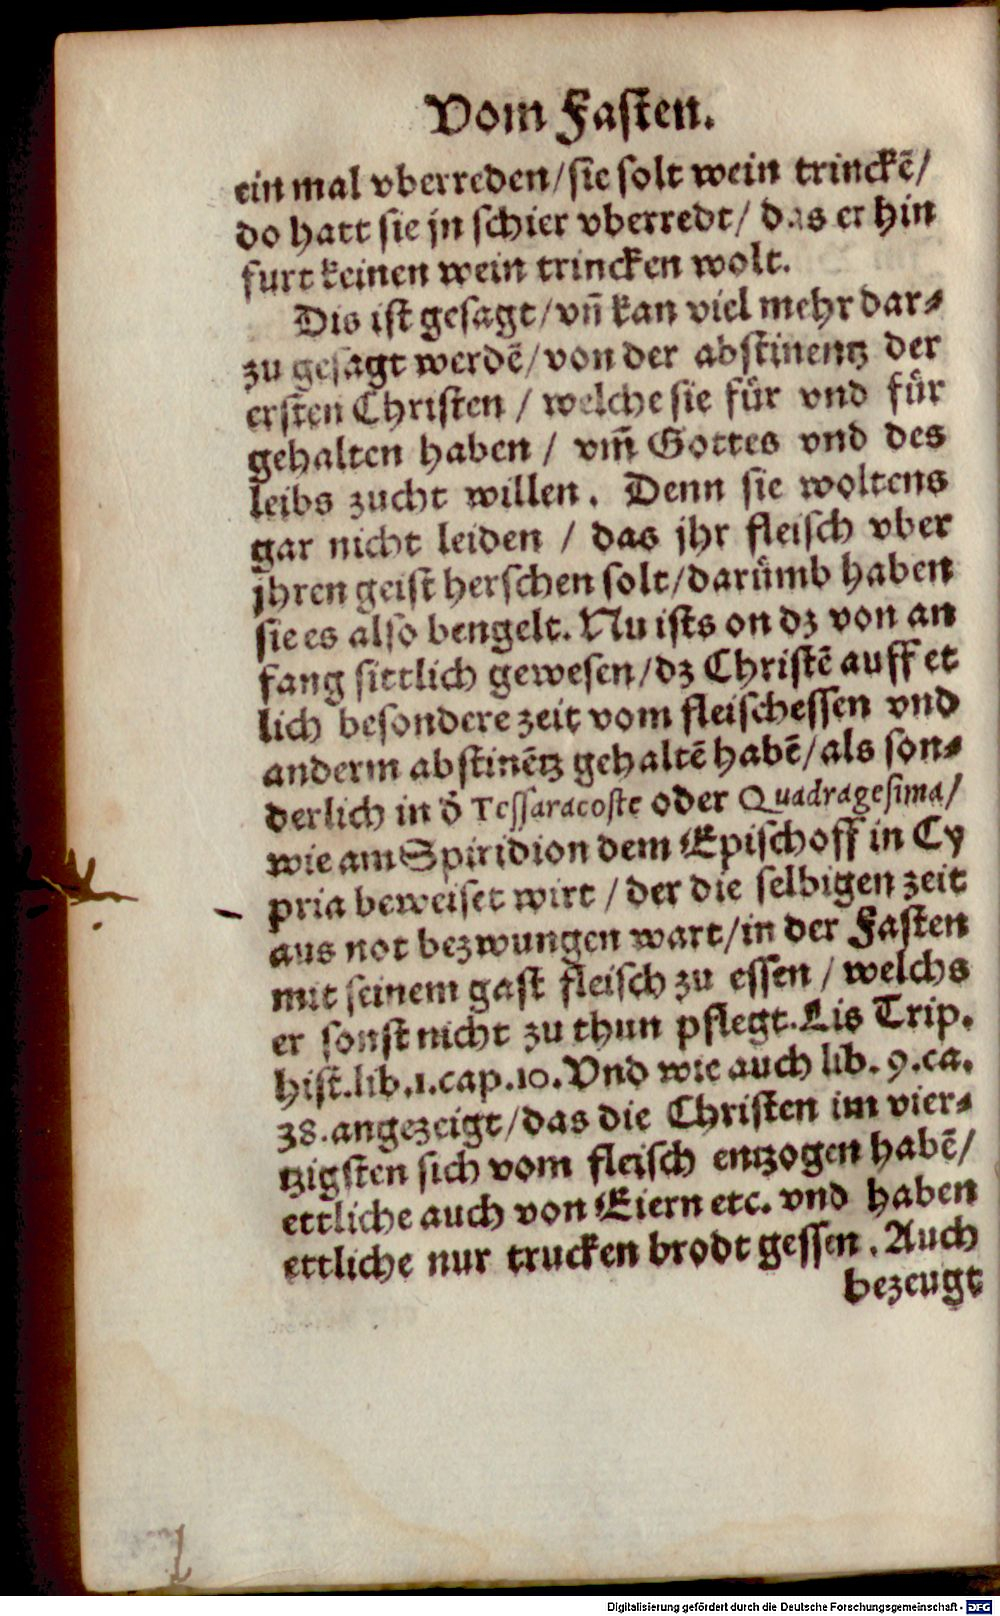 Vom Fasten.
ein mal vberreden/ sie solt wein trinckē/
do hatt sie jn schier vberredt/ das er hin
furt keinen wein trincken wolt.
Dis ist gesagt/ vn̄ kan viel mehr dar-
zu gesagt werdē/ von der abstinentz der
ersten Christen / welche sie fůr vnd fůr
gehalten haben / vm̄ Gottes vnd des
leibs zucht willen. Denn sie woltens
gar nicht leiden / das jhr fleisch vber
jhren geist herschen solt/ darůmb haben
sie es also bengelt. Nu ists on dz von an
fang sittlich gewesen/ dz Christē auff et
lich besondere zeit vom fleischessen vnd
anderm abstinētz gehaltē habē/ als son-
derlich in d̄ Tessaracoste oder Quadragesima/
wie am Spiridion dem Epischoff in Cy
pria beweiset wirt / der die selbigen zeit
aus not bezwungen wart/ in der Fasten
mit seinem gast fleisch zu essen / welchs
er sonst nicht zu thun pflegt. Lis Trip.
hist. lib. 1. cap. 10. Vnd wie auch lib. 9. ca.
38. angezeigt/ das die Christen im vier-
tzigsten sich vom fleisch entzogen habē/
ettliche auch von Eiern etc. vnd haben
ettliche nur trucken brodt gessen. Auch
bezeugt
Digitalisierung gefördert durch die Deutsche Forschungsgemeinschaft - DFG